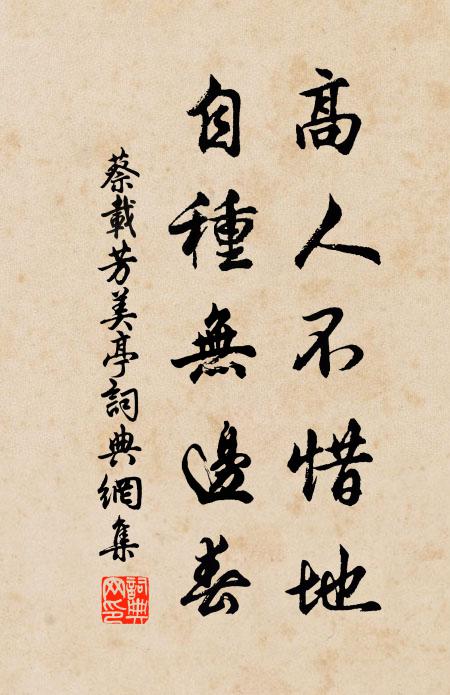 高人不惜地
自種無邊春
蔡載芳美亭詞典網集
詞典網印